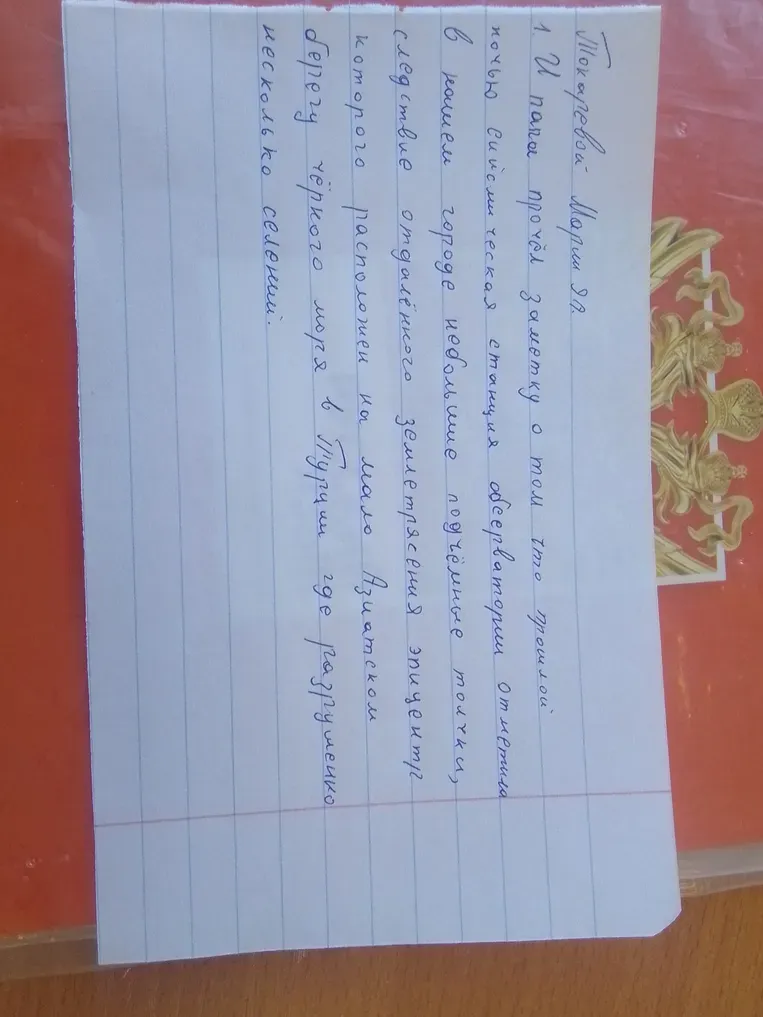 Токаревой Марии 9Л.
1. И папа прочёл заметку о том что прошлой
ночью сийсмическая станция обсерватории отметила
в нашем городе небольшие подчёмные толчки,
следствие отдалённого землетрясения эпицентр
которого расположен на мало Азиатском
берегу чёрного моря в Турции где разрушенно
несколько селений.